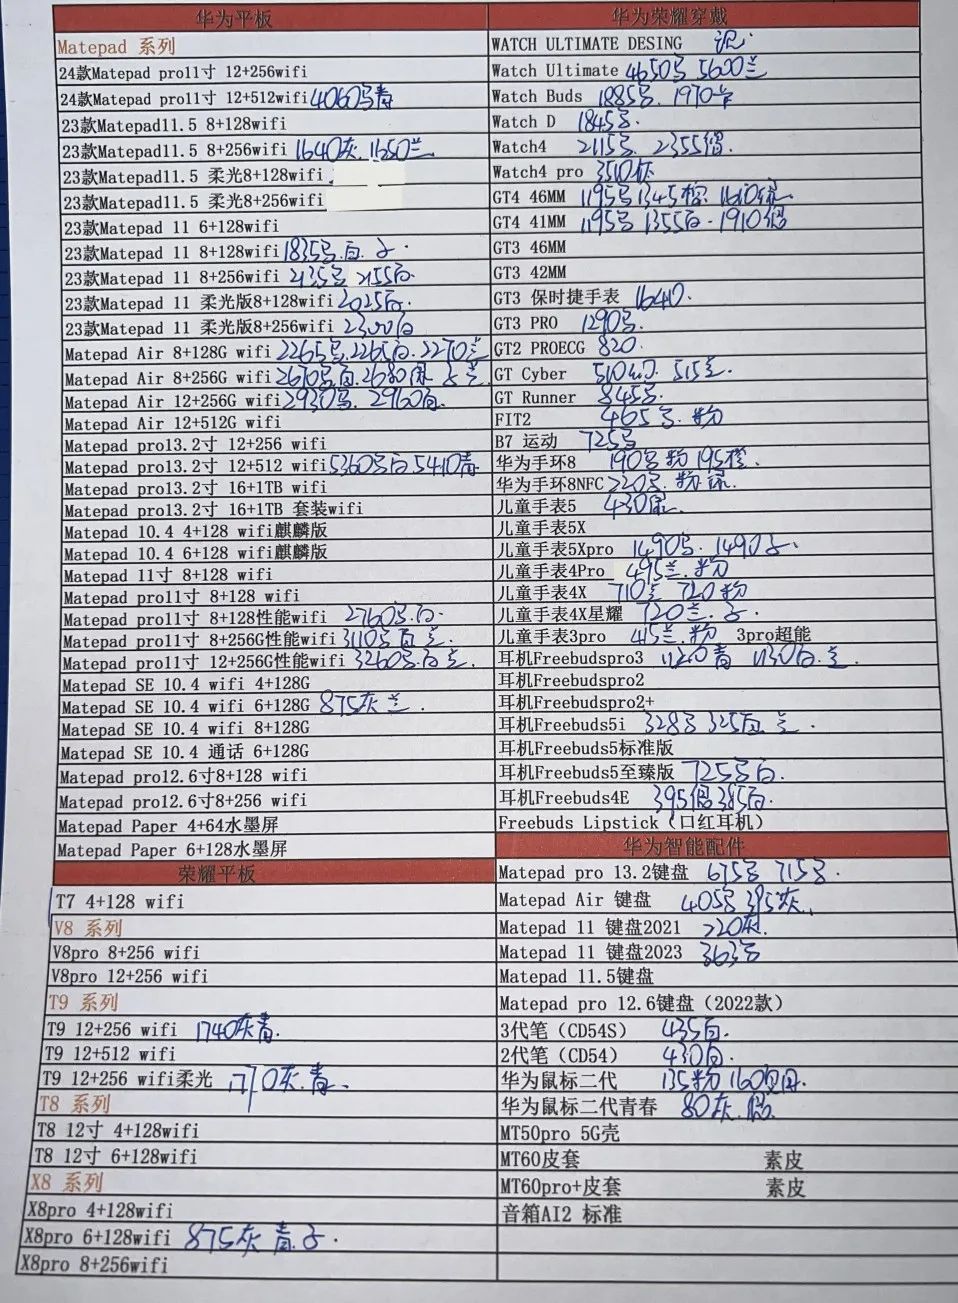 华为平板
Matepad 系列
24款Matepad pro11寸 12+256wifi
24款Matepad pro11寸 12+512wifi 4060号青
23款Matepad11.5 8+128wifi
23款Matepad11.5 8+256wifi 1640灰.1650兰
23款Matepad11.5 柔光8+128wifi
23款Matepad11.5 柔光8+256wifi
23款Matepad 11 6+128wifi
23款Matepad 11 8+128wifi 1835号.白.子.
23款Matepad 11 8+256wifi 2135号 2155白.
23款Matepad 11 柔光版8+128wifi 2025白.
23款Matepad 11 柔光版8+256wifi 2300白
Matepad Air 8+128G wifi 2265号.2265白.2270兰
Matepad Air 8+256G wifi 2670号.白.2680 兰
Matepad Air 12+256G wifi 2930号. 2960白.
Matepad Air 12+512G wifi
Matepad pro13.2寸 12+256 wifi
Matepad pro13.2寸 12+512 wifi 5360号白 5410青
Matepad pro13.2寸 16+1TB wifi
Matepad pro13.2寸 16+1TB 套装wifi
Matepad 10.4 4+128 wifi麒麟版
Matepad 10.4 6+128 wifi麒麟版
Matepad 11寸 8+128 wifi
Matepad pro11寸 8+128 wifi
Matepad pro11寸 8+128性能wifi 2760号.白.
Matepad pro11寸 8+256G性能wifi 3110号 白 兰.
Matepad pro11寸 12+256G性能wifi 3260号.白 兰.
Matepad SE 10.4 wifi 4+128G
Matepad SE 10.4 wifi 6+128G 875灰 兰.
Matepad SE 10.4 wifi 8+128G
Matepad SE 10.4 通话 6+128G
Matepad pro12.6寸8+128 wifi
Matepad pro12.6寸8+256 wifi
Matepad Paper 4+64水墨屏
Matepad Paper 6+128水墨屏
荣耀平板
T7 4+128 wifi
V8 系列
V8pro 8+256 wifi
V8pro 12+256 wifi
T9 系列
T9 12+256 wifi 1740灰青.
T9 12+512 wifi
T9 12+256 wifi柔光 1770灰.青.
T8 系列
T8 12寸 4+128wifi
T8 12寸 6+128wifi
X8 系列
X8pro 4+128wifi
X8pro 6+128wifi 875灰 青 子.
X8pro 8+256wifi
华为荣耀穿戴
WATCH ULTIMATE DESING
Watch Ultimate 4650号 5600兰
Watch Buds 1885号. 1970
Watch D 1845号.
Watch4 2115号. 2355
Watch4 pro 3510
GT4 46MM 1195号 1345棕. 1610绿.
GT4 41MM 1195号 1355白. 1910
GT3 46MM
GT3 42MM
GT3 保时捷手表 1640.
GT3 PRO 1290号.
GT2 PROECG 820.
GT Cyber 510 515兰.
GT Runner 845号.
FIT2 465号.粉
B7 运动 725号
华为手环8 190号 粉 195橙.
华为手环8NFC 220号. 粉 绿.
儿童手表5 430
儿童手表5X
儿童手表5Xpro 1490号. 1490子.
儿童手表4Pro 495兰.粉
儿童手表4X 710兰 720粉
儿童手表4X星耀 720兰.子.
儿童手表3pro 415兰.粉 3pro超能
耳机Freebudspro3 1120青 1130白.兰.
耳机Freebudspro2
耳机Freebudspro2+
耳机Freebuds5i 328号 325白 兰.
耳机Freebuds5标准版
耳机Freebuds5至臻版 725号白.
耳机Freebuds4E 395 385白.
Freebuds Lipstick（口红耳机）
华为智能配件
Matepad pro 13.2键盘 675号 715号.
Matepad Air 键盘 405号 395灰.
Matepad 11 键盘2021 220灰.
Matepad 11 键盘2023 363号
Matepad 11.5键盘
Matepad pro 12.6键盘（2022款）
3代笔（CD54S） 435白.
2代笔（CD54） 430白.
华为鼠标二代 135粉 160
华为鼠标二代青春 80灰.
MT50pro 5G壳
MT60皮套 素皮
MT60pro+皮套 素皮
音箱AI2 标准